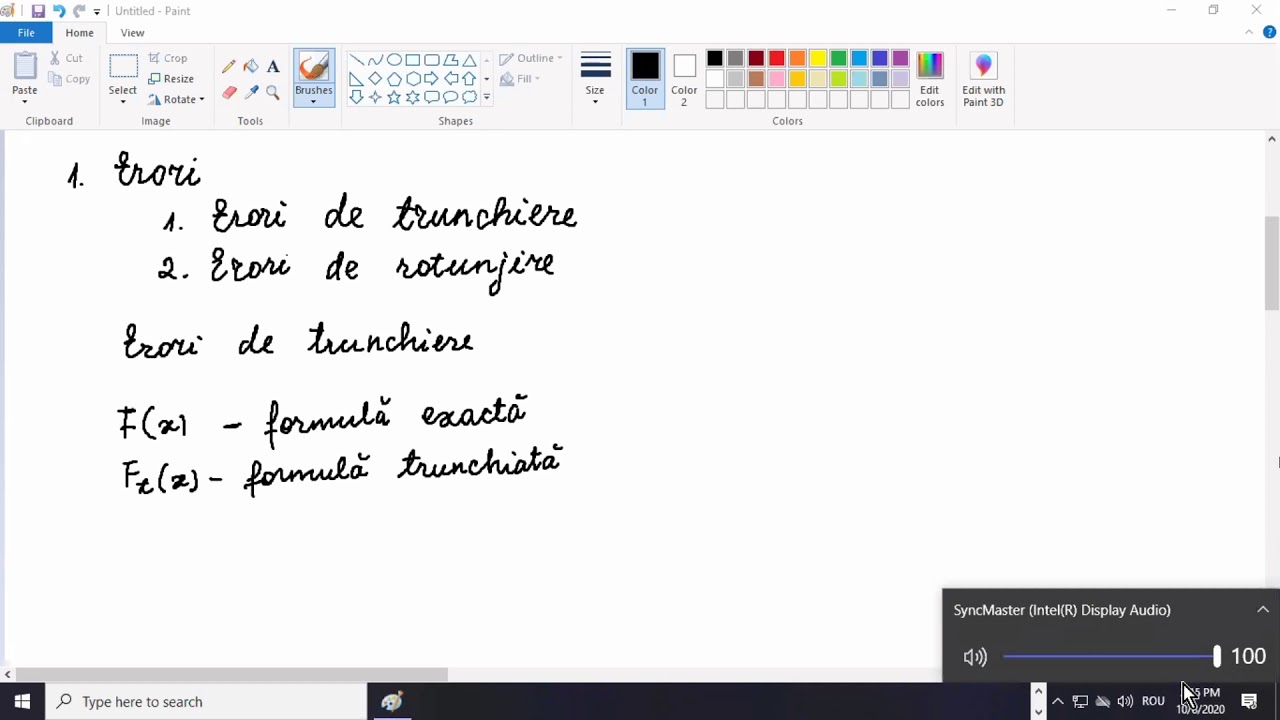 Untitled - Paint
File Home View
Paste Cut Copy Clipboard
Select Crop Resize Rotate Image
Tools
Brushes
Shapes Outline Fill
Size
Color 1 Color 2 Colors
Edit colors
Edit with Paint 3D
1. Erori
1. Erori de trunchiere
2. Erori de rotunjire
Erori de trunchiere
F(x) - formulă exactă
Ft(x) - formulă trunchiată
SyncMaster (Intel(R) Display Audio)
100
Type here to search
ROU